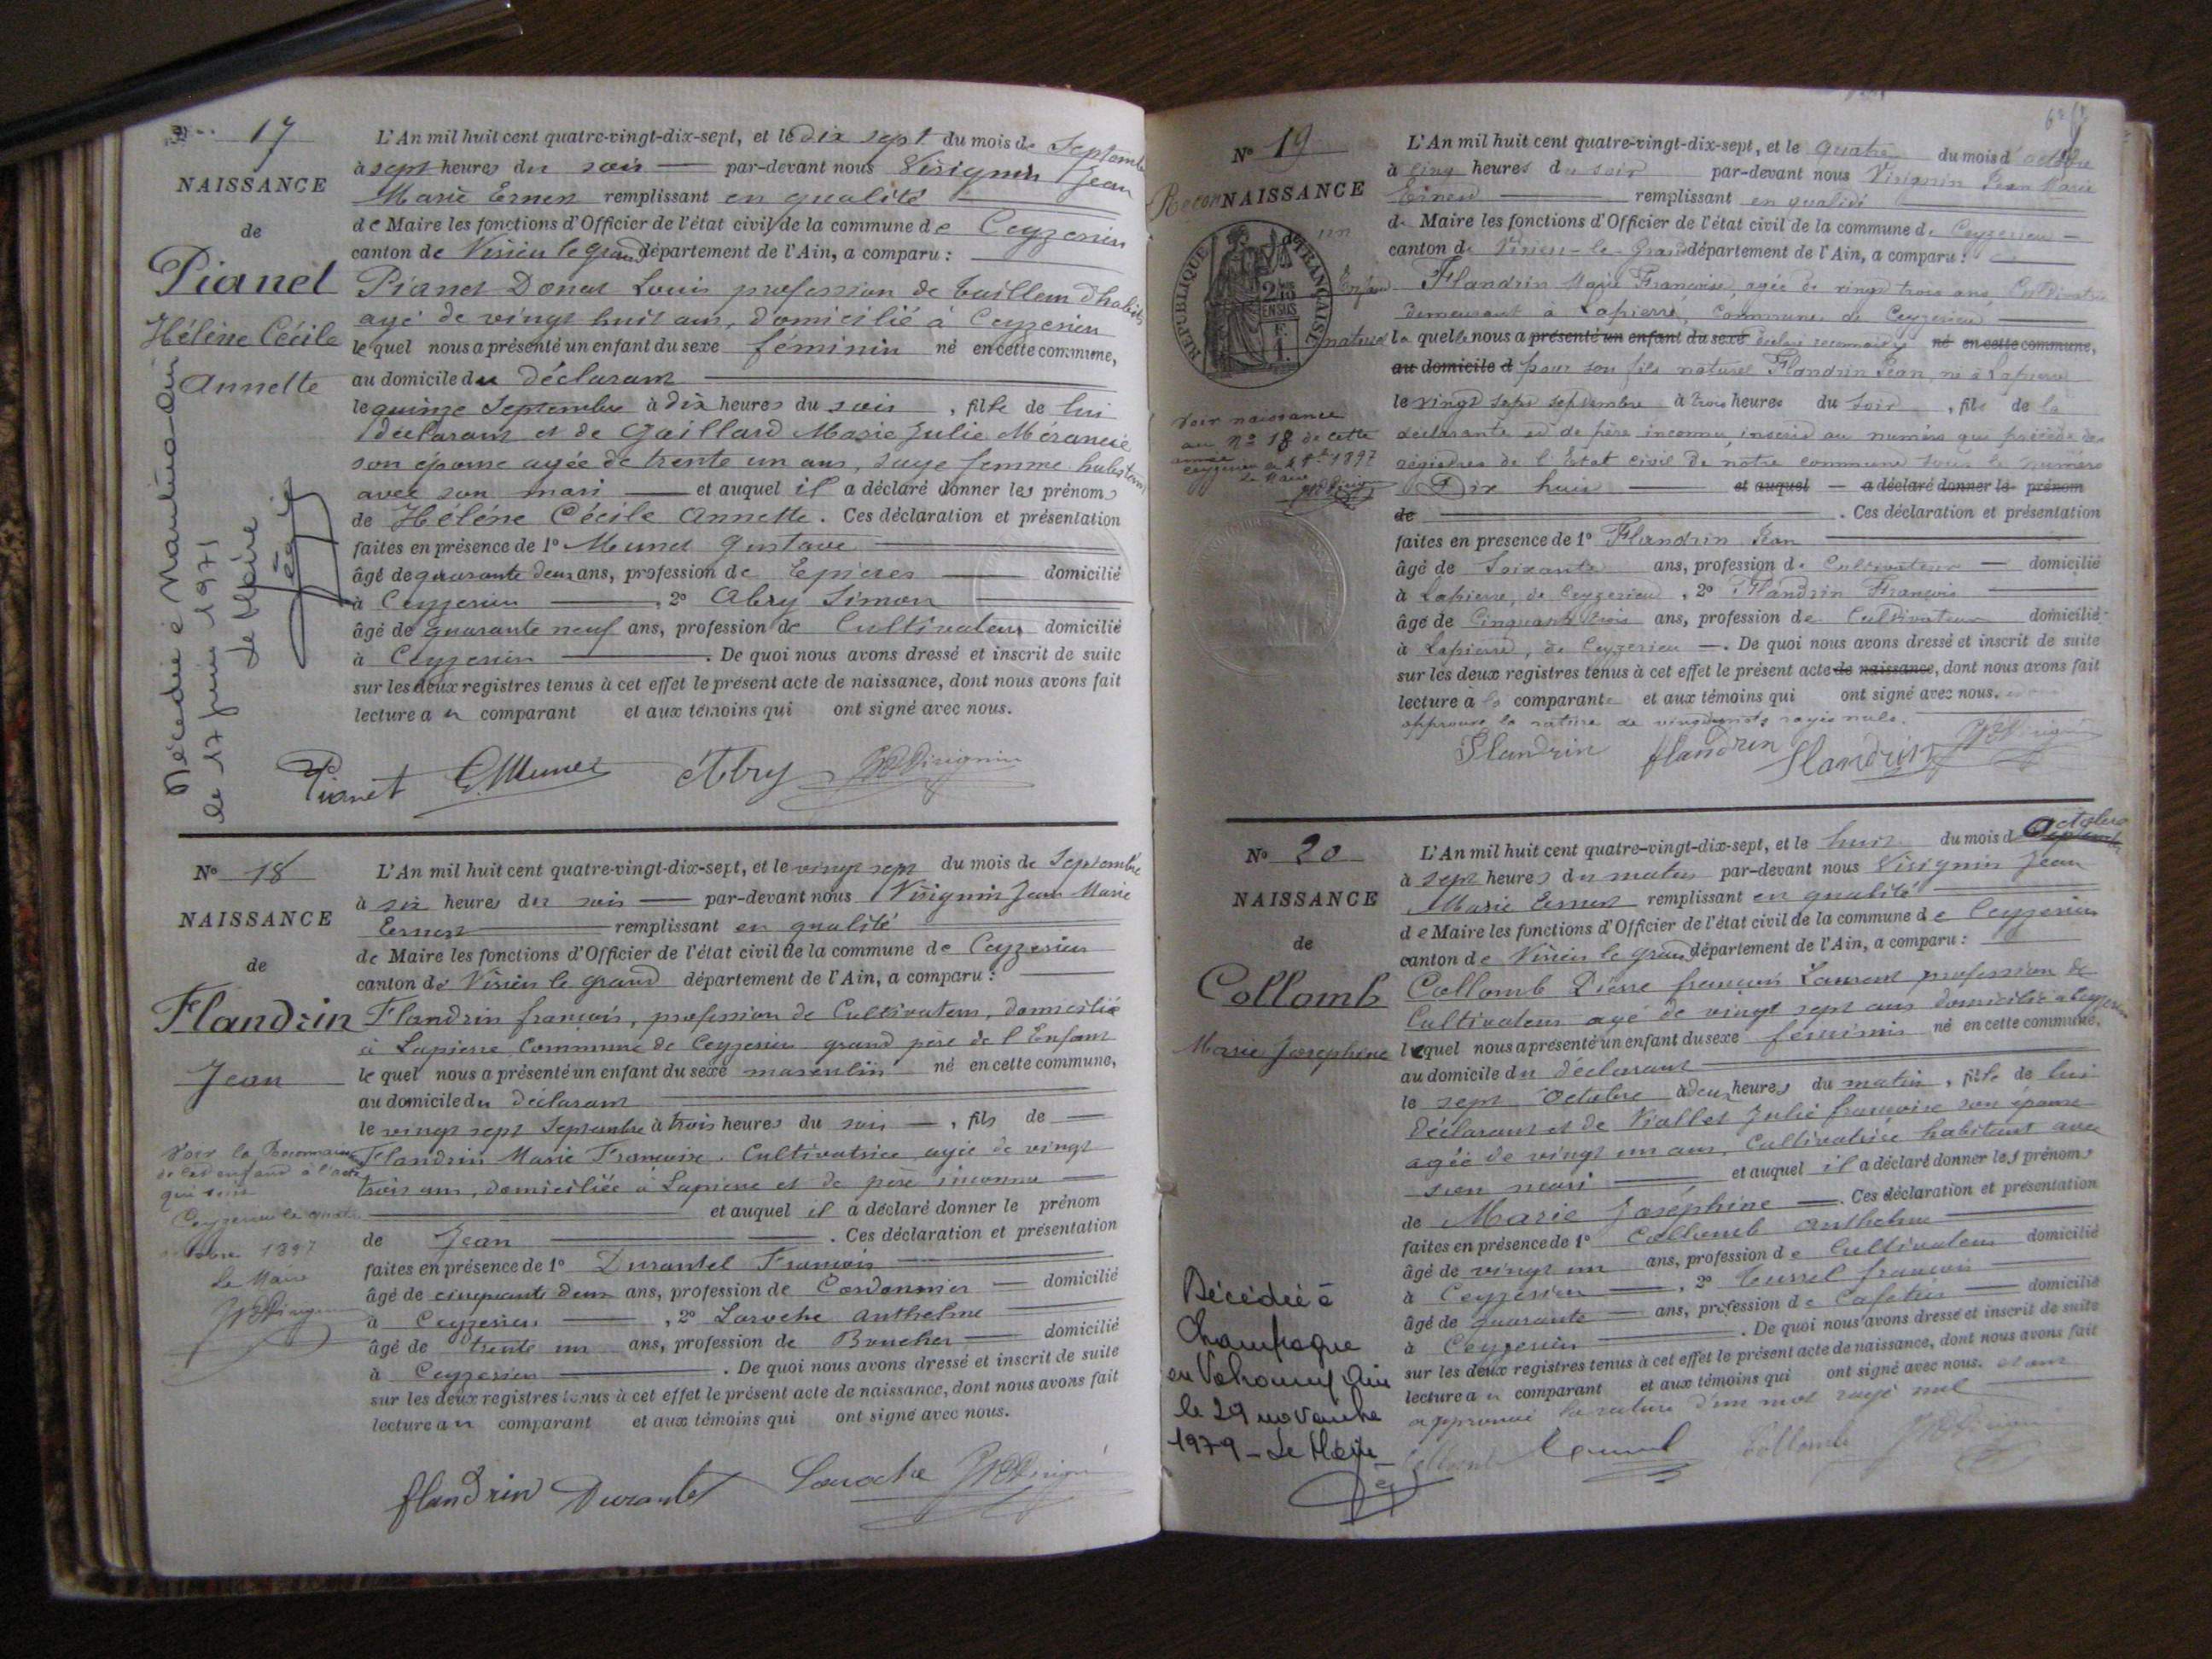 17
NAISSANCE
de
Pianet
Hélène Cécile
Annette
Décédée à Nantua Ain
le 17 juin 1971
Le Maire
L'An mil huit cent quatre-vingt-dix-sept, et le dix sept du mois de Septembre
à sept heures du soir par-devant nous Virignin Jean
Marie Ernest remplissant en qualité
de Maire les fonctions d'Officier de l'état civil de la commune de Ceyzerieu
canton de Virieu le grand département de l'Ain, a comparu :
Pianet Donat Louis profession de tailleur d'habits
agé de vingt huit ans, domicilié à Ceyzerieu
le quel nous a présenté un enfant du sexe féminin né en cette commune,
au domicile du déclarant
le quinze Septembre à dix heures du soir, fille de lui
déclarant et de Gaillard Marie Julie
son épouse agée de trente un ans, sage femme
avec son mari et auquel il a déclaré donner les prénoms
de Hélène Cécile Annette. Ces déclaration et présentation
faites en présence de 1º Meunet Gustave
âgé de quarante deux ans, profession de Epicier domicilié
à Ceyzerieu, 2º Abry Simon
âgé de quarante neuf ans, profession de Cultivateur domicilié
à Ceyzerieu. De quoi nous avons dressé et inscrit de suite
sur les deux registres tenus à cet effet le présent acte de naissance, dont nous avons fait
lecture au comparant et aux témoins qui ont signé avec nous.
Pianet Abry Virignin
Nº 18
NAISSANCE
de
Flandrin
Jean
Voir la Reconnaissance
de cet enfant à l'acte
qui suit
Ceyzerieu le quatre
octobre 1897
Le Maire
L'An mil huit cent quatre-vingt-dix-sept, et le vingt sept du mois de Septembre
à six heures du soir par-devant nous Virignin Jean Marie
Ernest remplissant en qualité
de Maire les fonctions d'Officier de l'état civil de la commune de Ceyzerieu
canton de Virieu le grand département de l'Ain, a comparu :
Flandrin françois, profession de Cultivateur, domicilié
à Lapierre Commune de Ceyzerieu grand père de l'Enfant
le quel nous a présenté un enfant du sexe masculin né en cette commune,
au domicile du déclarant
le vingt sept Septembre à trois heures du soir, fils de
Flandrin Marie Françoise, Cultivatrice agée de vingt
trois ans, domiciliée à Lapierre et de père inconnu
et auquel il a déclaré donner le prénom
de Jean. Ces déclaration et présentation
faites en présence de 1º Durantet François
âgé de cinquante deux ans, profession de Cordonnier domicilié
à Ceyzerieu, 2º Laroche Anthelme
âgé de trente un ans, profession de Boucher domicilié
à Ceyzerieu. De quoi nous avons dressé et inscrit de suite
sur les deux registres tenus à cet effet le présent acte de naissance, dont nous avons fait
lecture au comparant et aux témoins qui ont signé avec nous.
flandrin Durantet Laroche
Nº 19
ReconNAISSANCE
RÉPUBLIQUE FRANÇAISE
un
Enfant
naturel
Voir naissance
au Nº 18 de cette
année
1897
Le Maire
L'An mil huit cent quatre-vingt-dix-sept, et le quatre du mois d'octobre
à cinq heures du soir par-devant nous Virignin Jean Marie
Ernest remplissant en qualité
de Maire les fonctions d'Officier de l'état civil de la commune de Ceyzerieu
canton de Virieu-le-Grand département de l'Ain, a comparu :
Flandrin Marie Françoise, agée de vingt trois ans, Cultivatrice
demeurant à Lapierre, Commune de Ceyzerieu
la quelle nous a présenté un enfant du sexe déclaré reconnaître né en cette commune,
au domicile d pour son fils naturel Flandrin Jean, né à Lapierre
le vingt sept septembre à trois heures du soir, fils de la
déclarante et de père inconnu, inscrit au numéro qui précède des
régistres de l'Etat civil de notre commune sous le numéro
Dix huit et auquel a déclaré donner le prénom
de. Ces déclaration et présentation
faites en présence de 1º Flandrin Jean
âgé de Soixante ans, profession de Cultivateur domicilié
à Lapierre, de Ceyzerieu, 2º Flandrin François
âgé de Cinquante trois ans, profession de Cultivateur domicilié
à Lapierre, de Ceyzerieu. De quoi nous avons dressé et inscrit de suite
sur les deux registres tenus à cet effet le présent acte de naissance, dont nous avons fait
lecture à la comparante et aux témoins qui ont signé avec nous.
approuvé la rature de vingt mots rayés nuls.
Flandrin flandrin Flandrin
Nº 20
NAISSANCE
de
Collomb
Marie Josephine
Décédée à
Champagne
en Valromey Ain
le 29 novembre
1979 - Le Maire
L'An mil huit cent quatre-vingt-dix-sept, et le huit du mois d'Octobre
à sept heures du matin par-devant nous Virignin Jean
Marie Ernest remplissant en qualité
de Maire les fonctions d'Officier de l'état civil de la commune de Ceyzerieu
canton de Virieu le grand département de l'Ain, a comparu :
Collomb Pierre françois Laurent profession de
Cultivateur agé de vingt sept ans domicilié à Ceyzerieu
lequel nous a présenté un enfant du sexe féminin né en cette commune,
au domicile du déclarant
le sept Octobre à deux heures du matin, fille de lui
déclarant et de Viallet Julie françoise son épouse
agée de vingt un ans, Cultivatrice habitant avec
son mari et auquel il a déclaré donner les prénoms
de Marie Joséphine. Ces déclaration et présentation
faites en présence de 1º Collomb Anthelme
âgé de vingt un ans, profession de Cultivateur domicilié
à Ceyzerieu, 2º françois
âgé de quarante ans, profession de Cafetier domicilié
à Ceyzerieu. De quoi nous avons dressé et inscrit de suite
sur les deux registres tenus à cet effet le présent acte de naissance, dont nous avons fait
lecture au comparant et aux témoins qui ont signé avec nous.
approuvé la rature d'un mot rayé nul
Collomb Collomb